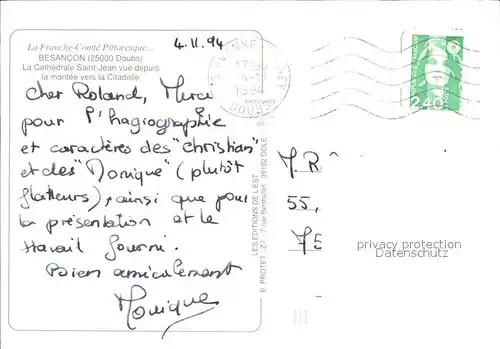 La Franche-Comté Pittoresque...
BESANÇON (25000 Doubs)
La Cathédrale Saint-Jean vue depuis
la montée vers la Citadelle
4.11.94
Cher Roland, Merci
pour l'hagiographie
et caractères des "Christian"
et des "Monique" (plutôt
flatteurs), ainsi que pour
la présentation et le
travail fourni.
Bien amicalement
Monique
DOUBS
2,40
LES EDITIONS DE L'EST
E. PROTET - Z.I - 7 rue Berthollet - 39102 DOLE
M. R
55,
75
privacy protection
Datenschutz